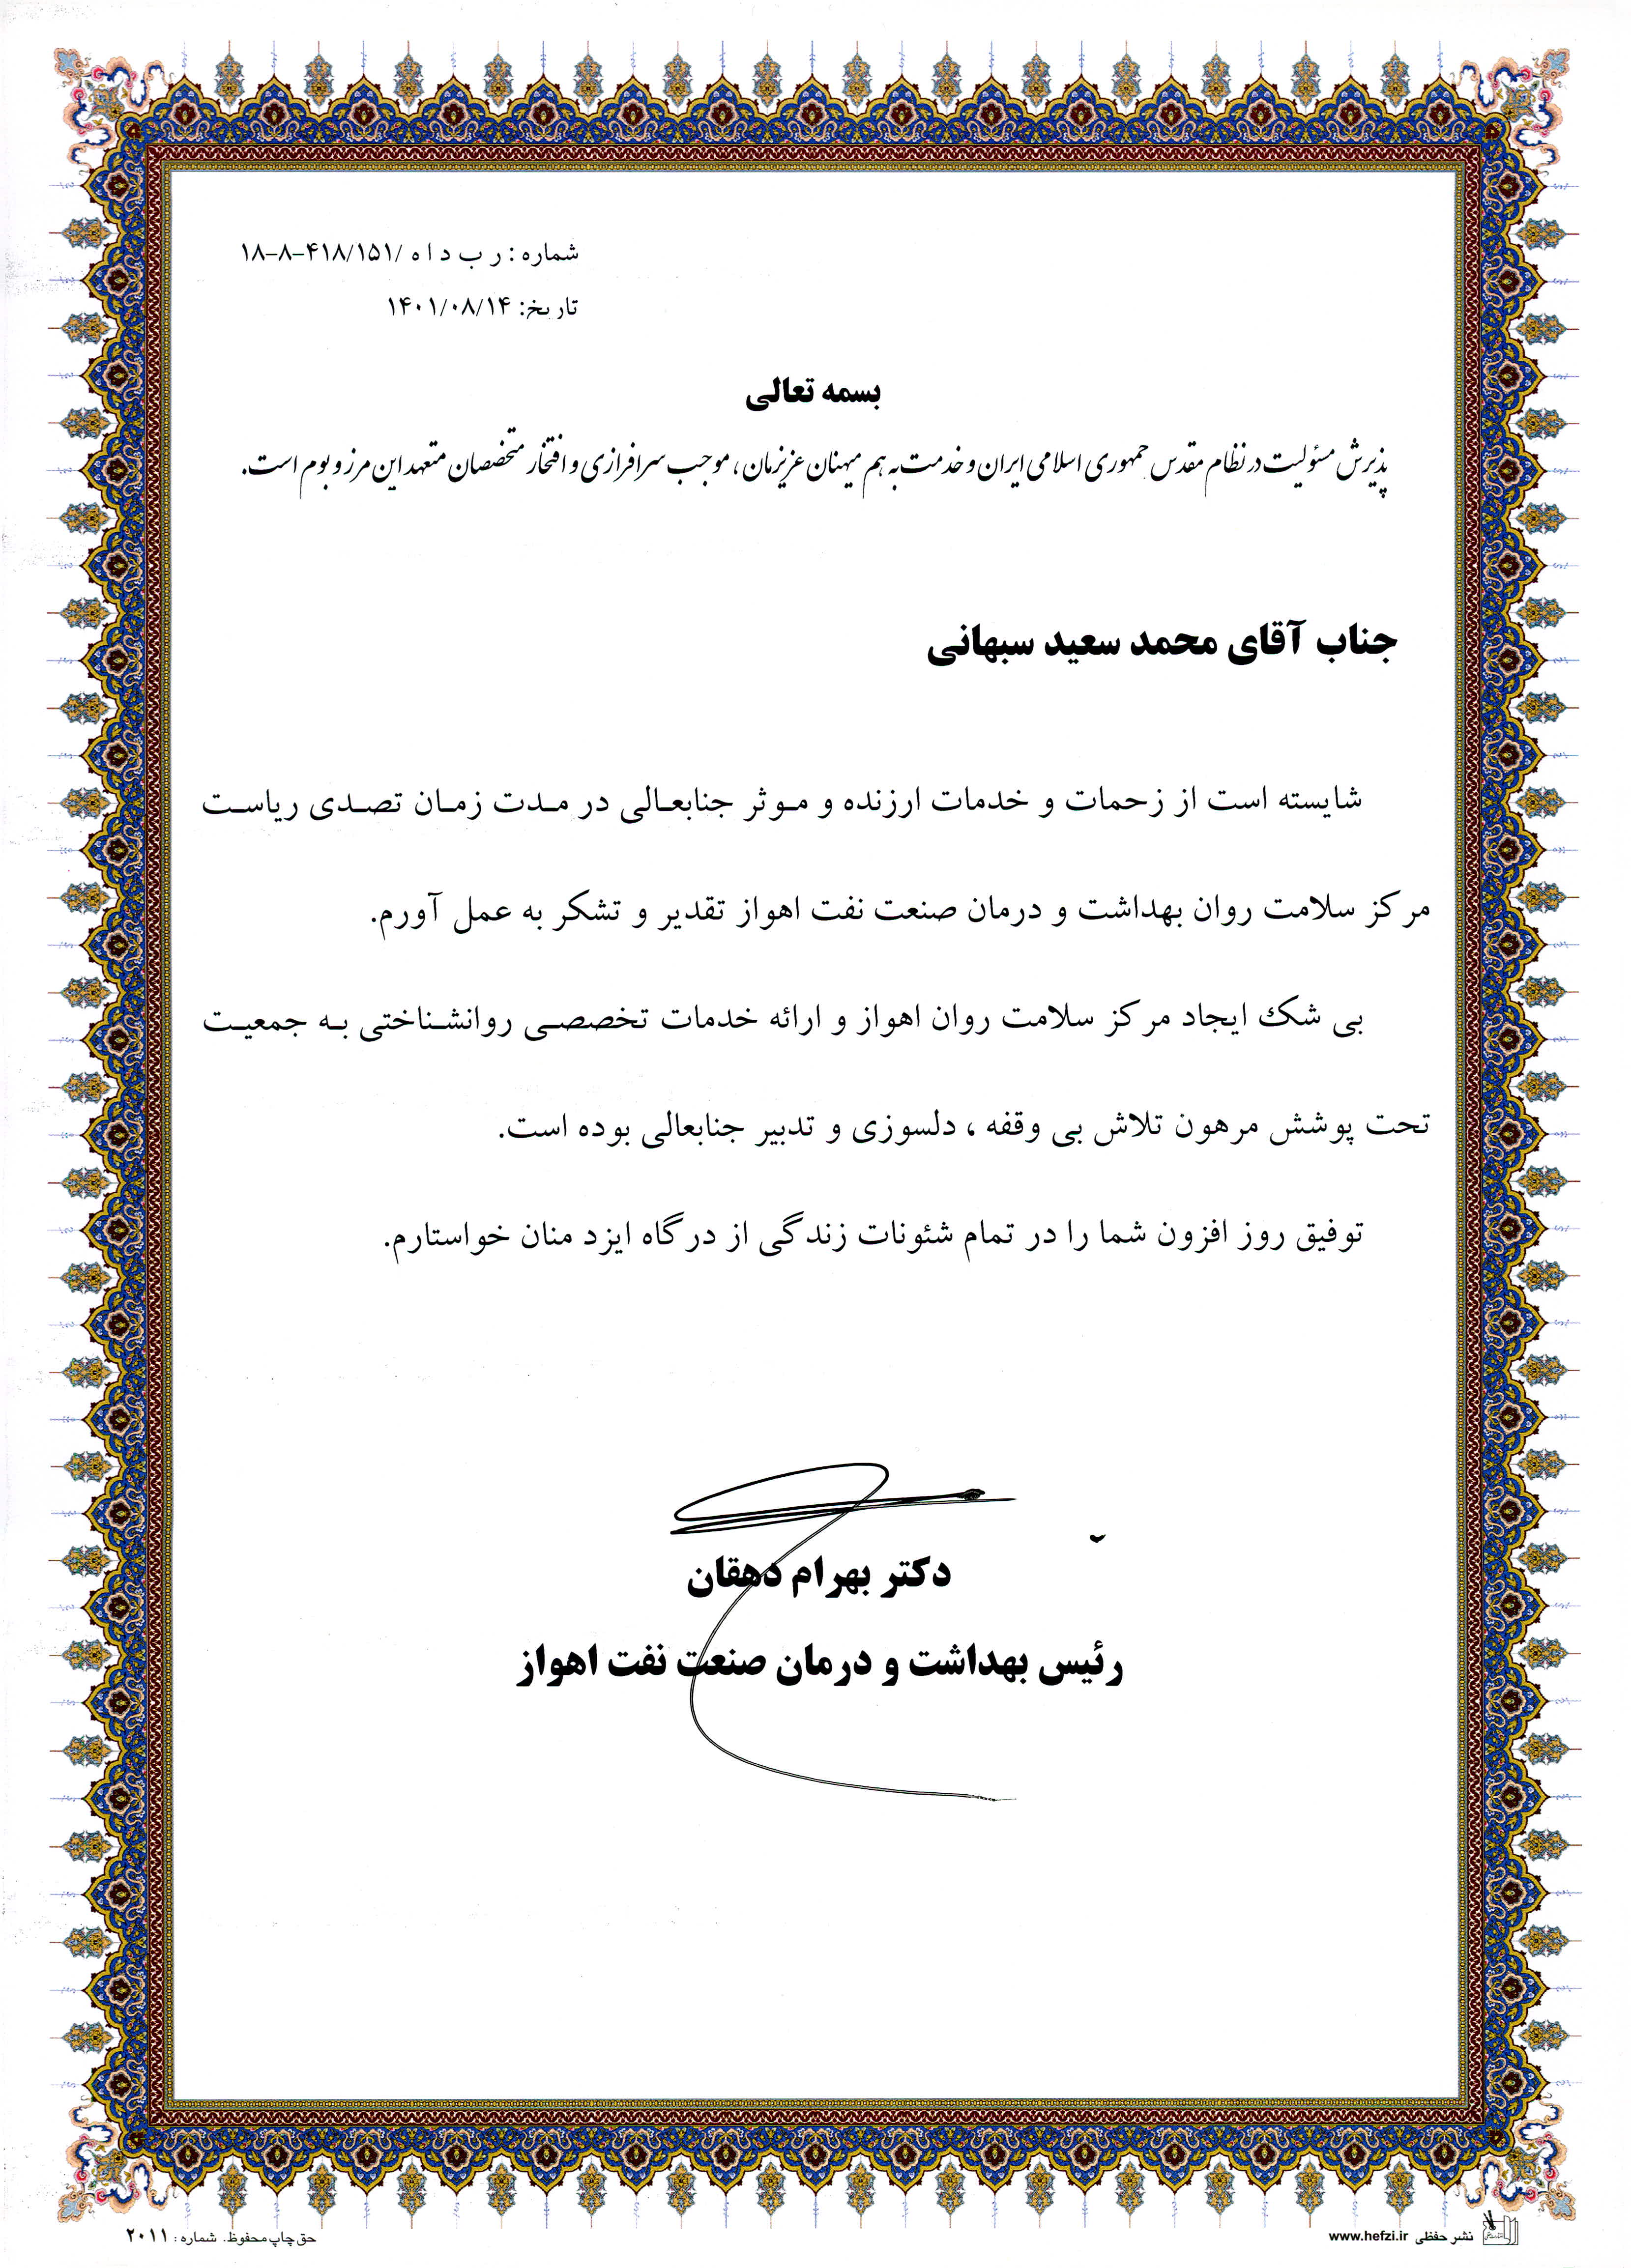 شماره : ر ب د ا ه /۱۸-۸-۴۱۸/۱۵۱
تاریخ: ۱۴۰۱/۰۸/۱۴
بسمه تعالی
پذیرش مسئولیت در نظام مقدس جمهوری اسلامی ایران و خدمت به هم میهنان عزیزمان ، موجب سرافرازی و افتخار متخصصان متعهد این مرز و بوم است.
جناب آقای محمد سعید سبهانی
شایسته است از زحمات و خدمات ارزنده و موثر جنابعالی در مدت زمان تصدی ریاست
مرکز سلامت روان بهداشت و درمان صنعت نفت اهواز تقدیر و تشکر به عمل آورم.
بی شک ایجاد مرکز سلامت روان اهواز و ارائه خدمات تخصصی روانشناختی به جمعیت
تحت پوشش مرهون تلاش بی وقفه ، دلسوزی و تدبیر جنابعالی بوده است.
توفیق روز افزون شما را در تمام شئونات زندگی از درگاه ایزد منان خواستارم.
دکتر بهرام دهقان
رئیس بهداشت و درمان صنعت نفت اهواز
نشر حفظی www.hefzi.ir
حق چاپ محفوظ. شماره : ۲۰۱۱